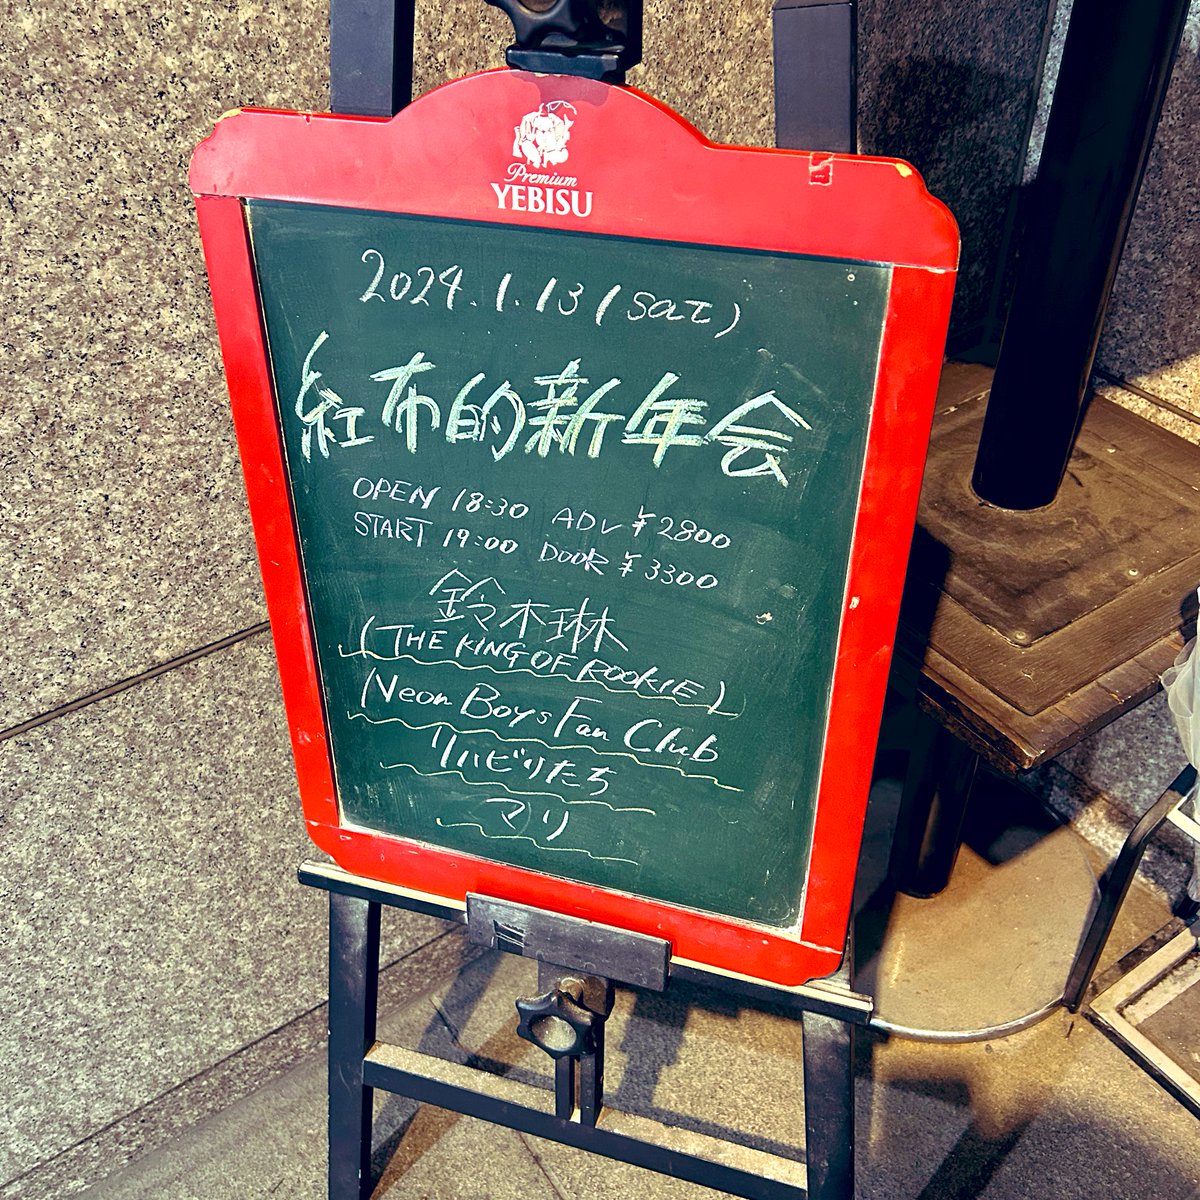 Premium
YEBISU
2024.1.13(Sat)
紅布的新年会
OPEN 18:30 ADV ¥2800
START 19:00 DOOR ¥3300
鈴木琳
(THE KING OF ROOKIE)
Neon Boys Fan Club
リハビリたち
マリ